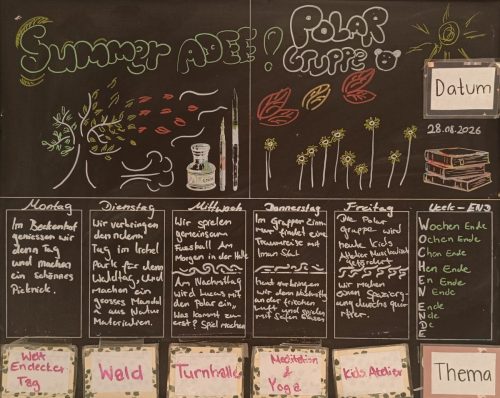 Summer ADEE! POLAR
GRUPPE
Datum
28.08.2026
Montag
Im Beckenhof
geniessen wir
den Tag
und machen
ein schönes
Picknick.
Dienstag
Wir verbringen
den
Tag im Irchel
Park für den
Waldtag, Und
machen ein
grosses Mandal
a aus Natur
Materialien.
Mittwoch
Wir spielen
gemeinsam
Fussball Am
Morgen in der Halle
Am Nachmittag
wird Lucas mit
den Polar ein,
Was kommt zu
erst? Spiel machen
Donnerstag
Im Gruppen Zimm
findet eine
Traumreise mit
statt
den Nachmittag
an der frischen
Luft und spielen
mit Seifenblasen
Freitag
Die Polar
gruppe wird
heute Kids
Atelier Musikalisch
gefördert
Wir machen
einen Spazierg-
ang durchs quar-
tier.
Week-END
Wochen Ende
Ochen Ende
Chen Ende
Hen Ende
En Ende
N Ende
E
N
D
E
Welt
Endecker
Tag
Wald
Turnhalle
Meditation
&
Yoga
Kids Atelier
Thema